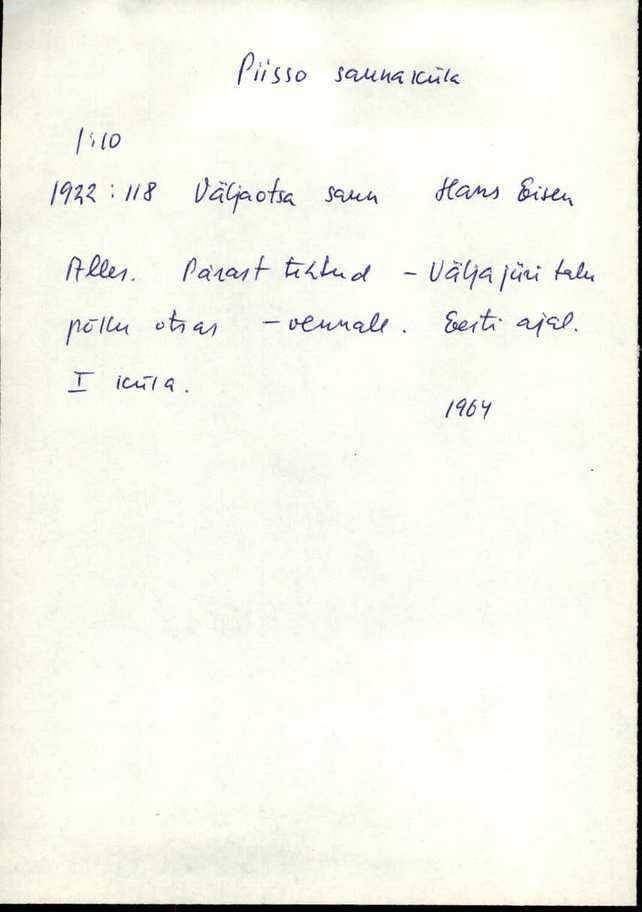 Piisso saunaküla
1:10
1922:118 Väljaotsa saun Hans Eisen
Alles. Pärast tehtud - Väljajüri talu
põllu otsas - vennale. Eesti ajal.
I küla.
1964